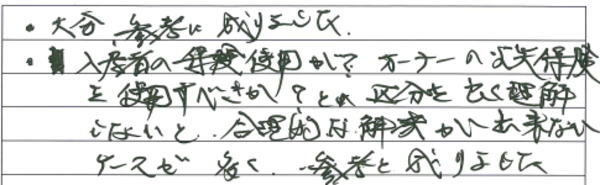 ・大分 参考に成りました。
・入居者の保険使用か？オーナーの火災保険
を使用すべきか？との区分を良く理解
しないと、合理的な解決が出来ない
ケースが多く、参考と成りました